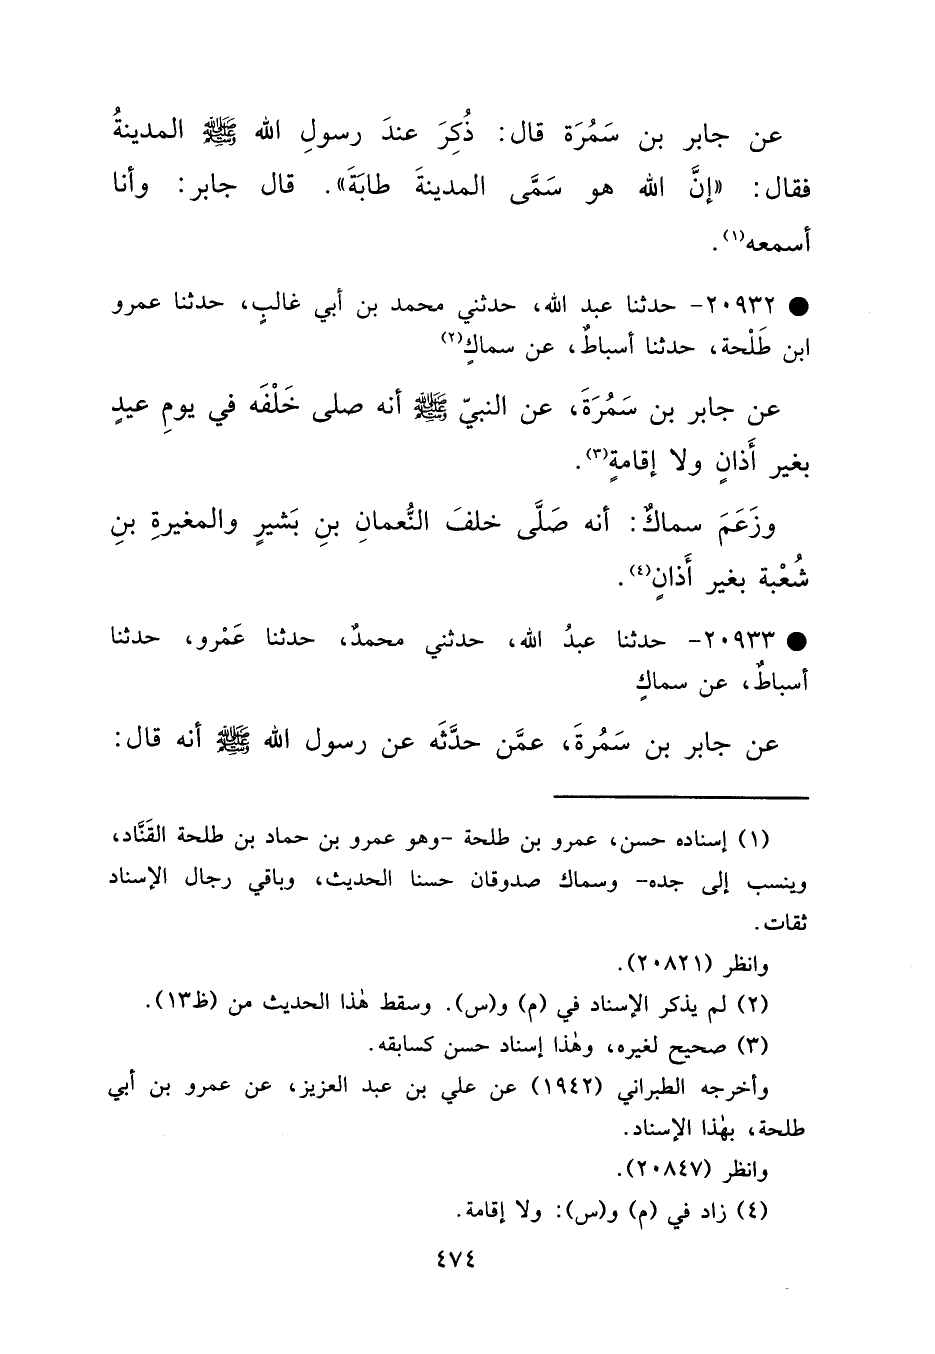 عن جابر بن سَمُرَة قال: ذُكِرَ عندَ رسولِ الله ﷺ المدينةُ
فقال: «إنَّ الله هو سَمَّى المدينةَ طابَةَ». قال جابر: وأنا
أسمعه(١).
● ٢٠٩٣٢- حدثنا عبد الله، حدثني محمد بن أبي غالبٍ، حدثنا عمرو
ابن طَلْحة، حدثنا أسباطٌ، عن سماكٍ(٢)
عن جابر بن سَمُرَةَ، عن النبيّ ﷺ أنه صلى خَلْفَه في يومِ عيدٍ
بغير أَذانٍ ولا إقامةٍ(٣).
وزَعَمَ سماكٌ: أنه صَلَّى خلفَ النُّعمانِ بنِ بَشيرٍ والمغيرةِ بنِ
شُعْبة بغير أَذانٍ(٤).
● ٢٠٩٣٣- حدثنا عبدُ الله، حدثني محمدٌ، حدثنا عَمْرو، حدثنا
أسباطٌ، عن سماكٍ
عن جابر بن سَمُرةَ، عمَّن حدَّثَه عن رسول الله ﷺ أنه قال:
(١) إسناده حسن، عمرو بن طلحة -وهو عمرو بن حماد بن طلحة القَنَّاد،
وينسب إلى جده- وسماك صدوقان حسنا الحديث، وباقي رجال الإسناد
ثقات.
وانظر (٢٠٨٢١).
(٢) لم يذكر الإسناد في (م) و(س). وسقط هٰذا الحديث من (ظ١٣).
(٣) صحيح لغيره، وهٰذا إسناد حسن كسابقه.
وأخرجه الطبراني (١٩٤٢) عن علي بن عبد العزيز، عن عمرو بن أبي
طلحة، بهٰذا الإسناد.
وانظر (٢٠٨٤٧).
(٤) زاد في (م) و(س): ولا إقامة.
٤٧٤